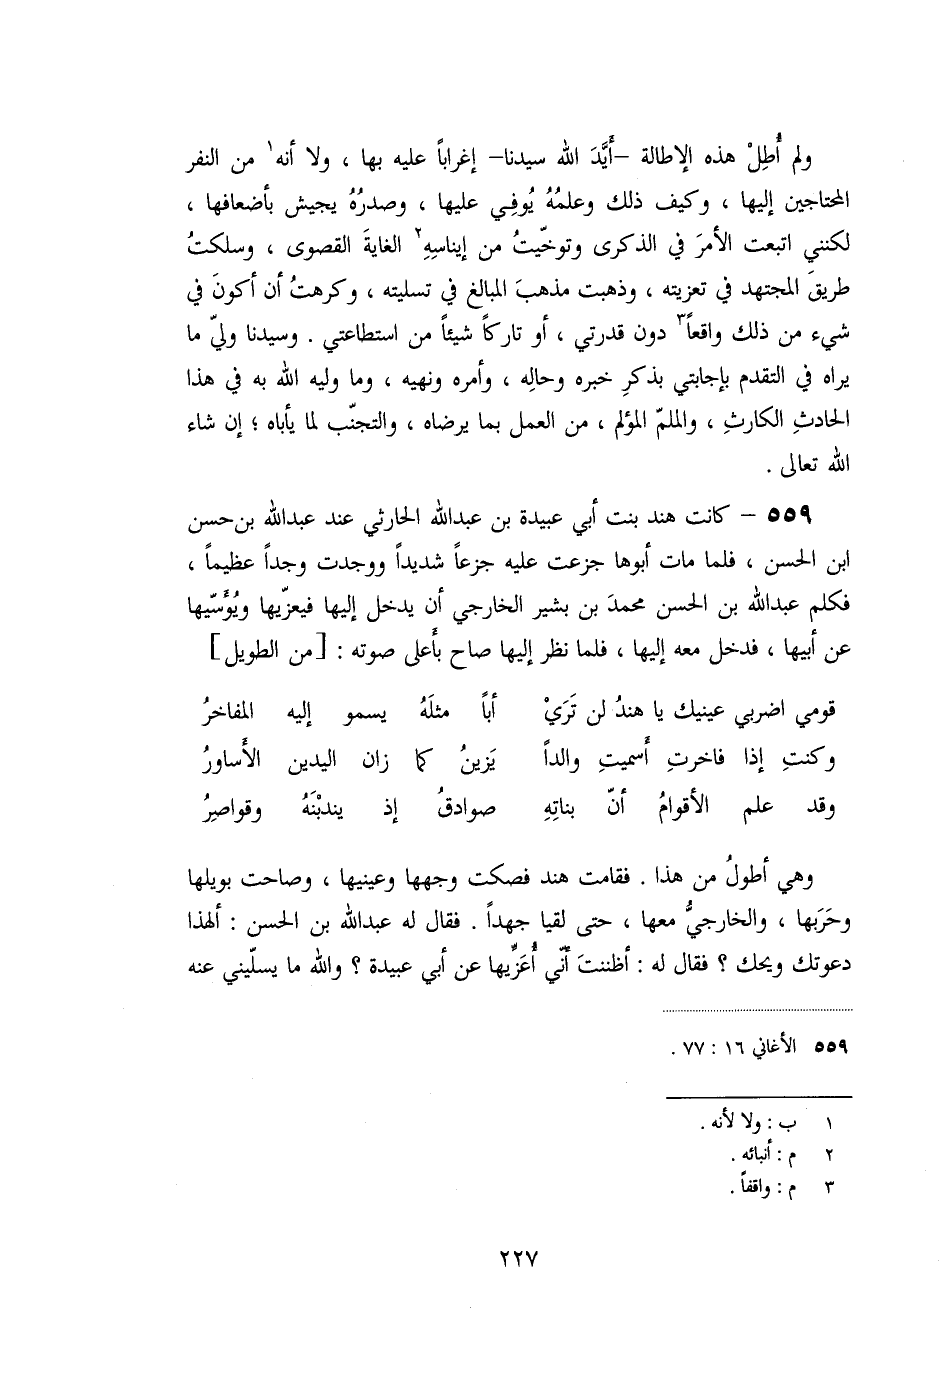 ولم أُطِلْ هذه الإطالة –أَيَّدَ الله سيدنا– إغراباً عليه بها ، ولا أنه١ من النفر
المحتاجين إليها ، وكيف ذلك وعلمُهُ يُوفِي عليها ، وصدرُهُ يجيش بأضعافها ،
لكنني اتبعت الأمرَ في الذكرى وتوخّيتُ من إيناسِهِ٢ الغايةَ القصوى ، وسلكتُ
طريقَ المجتهد في تعزيته ، وذهبت مذهبَ المبالغ في تسليته ، وكرهتُ أن أكونَ في
شيء من ذلك واقعاً٣ دون قدرتي ، أو تاركاً شيئاً من استطاعتي . وسيدنا وليّ ما
يراه في التقدم بإجابتي بذكرِ خبره وحالِه ، وأمره ونهيه ، وما وليه الله به في هذا
الحادثِ الكارثِ ، والملمّ المؤلم ، من العمل بما يرضاه ، والتجنّب لما يأباه ؛ إن شاء
الله تعالى .
٥٥٩ – كانت هند بنت أبي عبيدة بن عبدالله الحارثي عند عبدالله بن حسن
ابن الحسن ، فلما مات أبوها جزعت عليه جزعاً شديداً ووجدت وجداً عظيماً ،
فكلم عبدالله بن الحسن محمدَ بن بشير الخارجي أن يدخل إليها فيعزّيها ويُؤَسّيها
عن أبيها ، فدخل معه إليها ، فلما نظر إليها صاح بأَعلى صوته : [من الطويل]
قومي اضربي عينيك يا هندُ لن تَرَيْ أباً مثلَهُ يسمو إليه المفاخرُ
وكنتِ إذا فاخرتِ أَسميتِ والداً يَزينُ كما زان اليدين الأَساورُ
وقد علم الأقوامُ أنّ بناتِهِ صوادقُ إذ يندبْنَهُ وقواصِرُ
وهي أطولُ من هذا . فقامت هند فصكت وجهها وعينيها ، وصاحت بويلها
وحَرَبها ، والخارجيُّ معها ، حتى لقيا جهداً . فقال له عبدالله بن الحسن : ألهذا
دعوتك ويحك ؟ فقال له : أظننتَ أنّي أُعَزِّيها عن أبي عبيدة ؟ والله ما يسلّيني عنه
٥٥٩ الأغاني ١٦ : ٧٧ .
١ ب : ولا لأنه .
٢ م : أنبائه .
٣ م : واقفاً .
٢٢٧